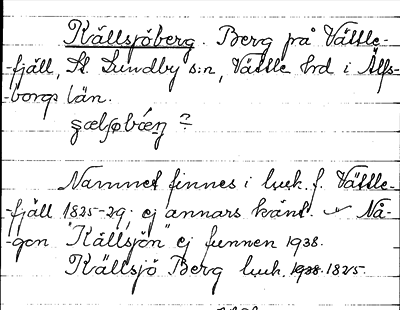 Källsjöberg. Berg på Vättle-
-fjäll, St. Lundby s:n, Vättle hrd i Älfs-
-borgs län.
Namnet finnes i luuk. f. Vättle-
-fjäll 1825-29; ej annars känt. Nå-
-gon "Källsjön" ej funnen 1938.
Källsjö Berg luuk. 1825.